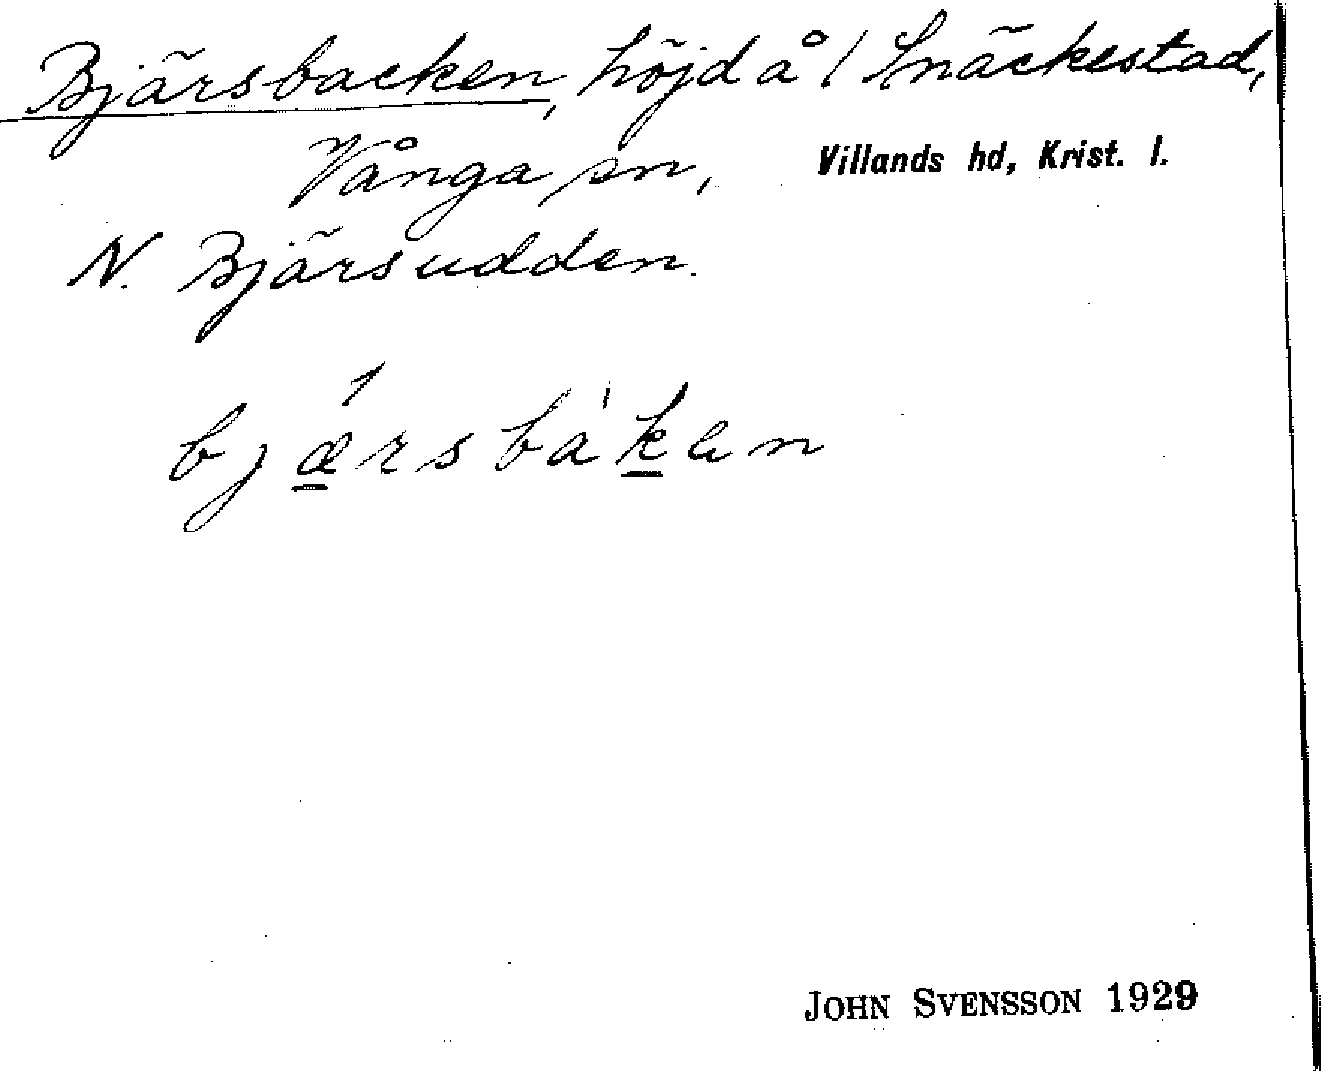 Bjärsbacken, höjd å / Snäckestad,
Vånga sn, Villands hd, Krist. l.
N. Bjärsudden.
bjǽ̲rsbàk̲en
JOHN SVENSSON 1929